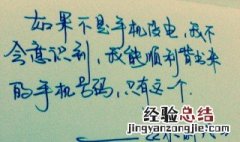 如果不是手机没电,我不
会意识到,我能顺利背出来
的手机号码,只有这一个.
经验总结
jingyanzongjie.com